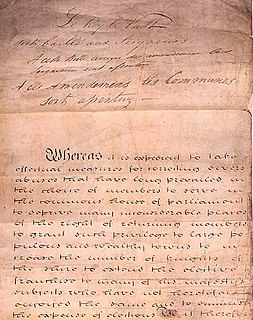 Le Roy le Veult
Soit baillé aux Seigneurs
A cette Bille avecque des amendemens les
Seigneurs sont assentuz
A ces Amendemens les Communes
sont assentuz
Whereas it is expedient to take
effectual measures for correcting divers
abuses that have long prevailed in
the choice of members to serve in
the commons house of parliament
to deprive many inconsiderable places
of the right of returning members
to grant such privilege to large po
pulous and wealthy towns to in
crease the number of knights of
the shire to extend the elective
franchise to many of his majesty's
subjects who have not heretofore
enjoyed the same and to diminish
the expense of elections Be it therefo